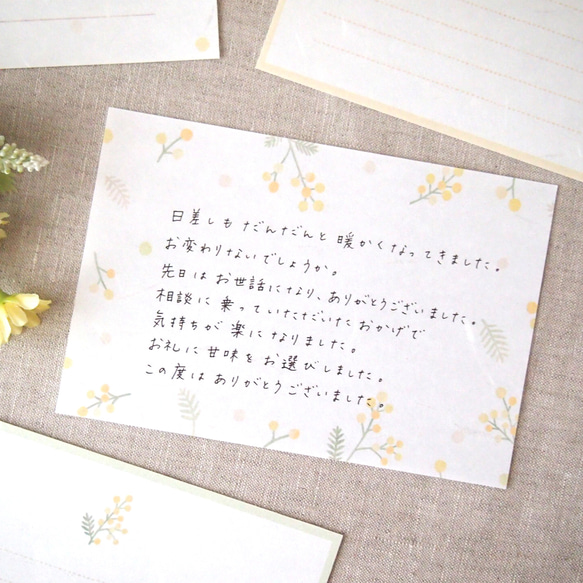 日差しもだんだんと暖かくなってきました。
お変わりないでしょうか。
先日はお世話になり、ありがとうございました。
相談に乗っていただいたおかげで
気持ちが楽になりました。
お礼に甘味をお選びしました。
この度はありがとうございました。